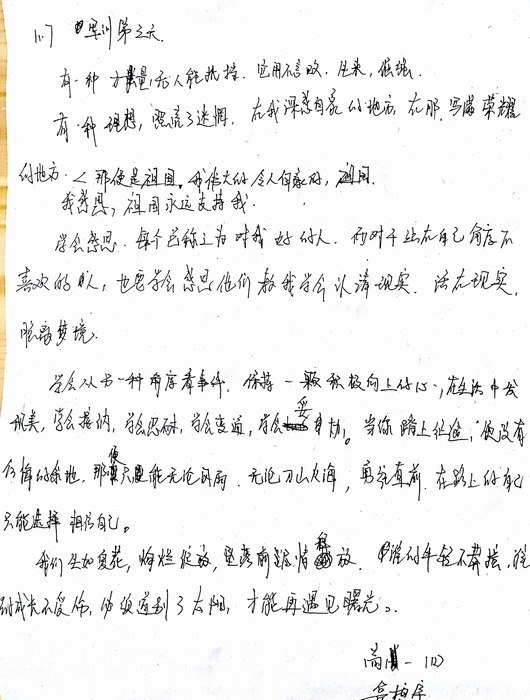 11.7 军训第三天
有一种力量,无人能抵挡。它用不言败。生来,倔强.
有一种理想,照亮了迷惘。在我深感自豪的地方,在那写满荣耀
的地方.那便是祖国。我伟大的令人自豪的,祖国.
我感恩,祖国永远支持我.
学会感恩.每个已称之为对我好的人.而对于站在自己角度不
喜欢的人,也要学会感恩他们教我学会认清现实.活在现实,
脱离梦境.
学会从另一种角度看事件.保持一颗积极向上的心,在生活中发
现美,学会接纳,学会思研,学会变通,学会妥协。当你踏上征途,便没有
后悔的余地.那便只能无论风雨.无论刀山火海,勇往直前.在路上的自己
只能选择相信自己。
我们生如夏花,绚烂绽放,坠落前尽情释放.谁的年轻不莽撞,谁
的成长不受伤,你须遭到了太阳,才能再遇见曙光。
高一 (2)